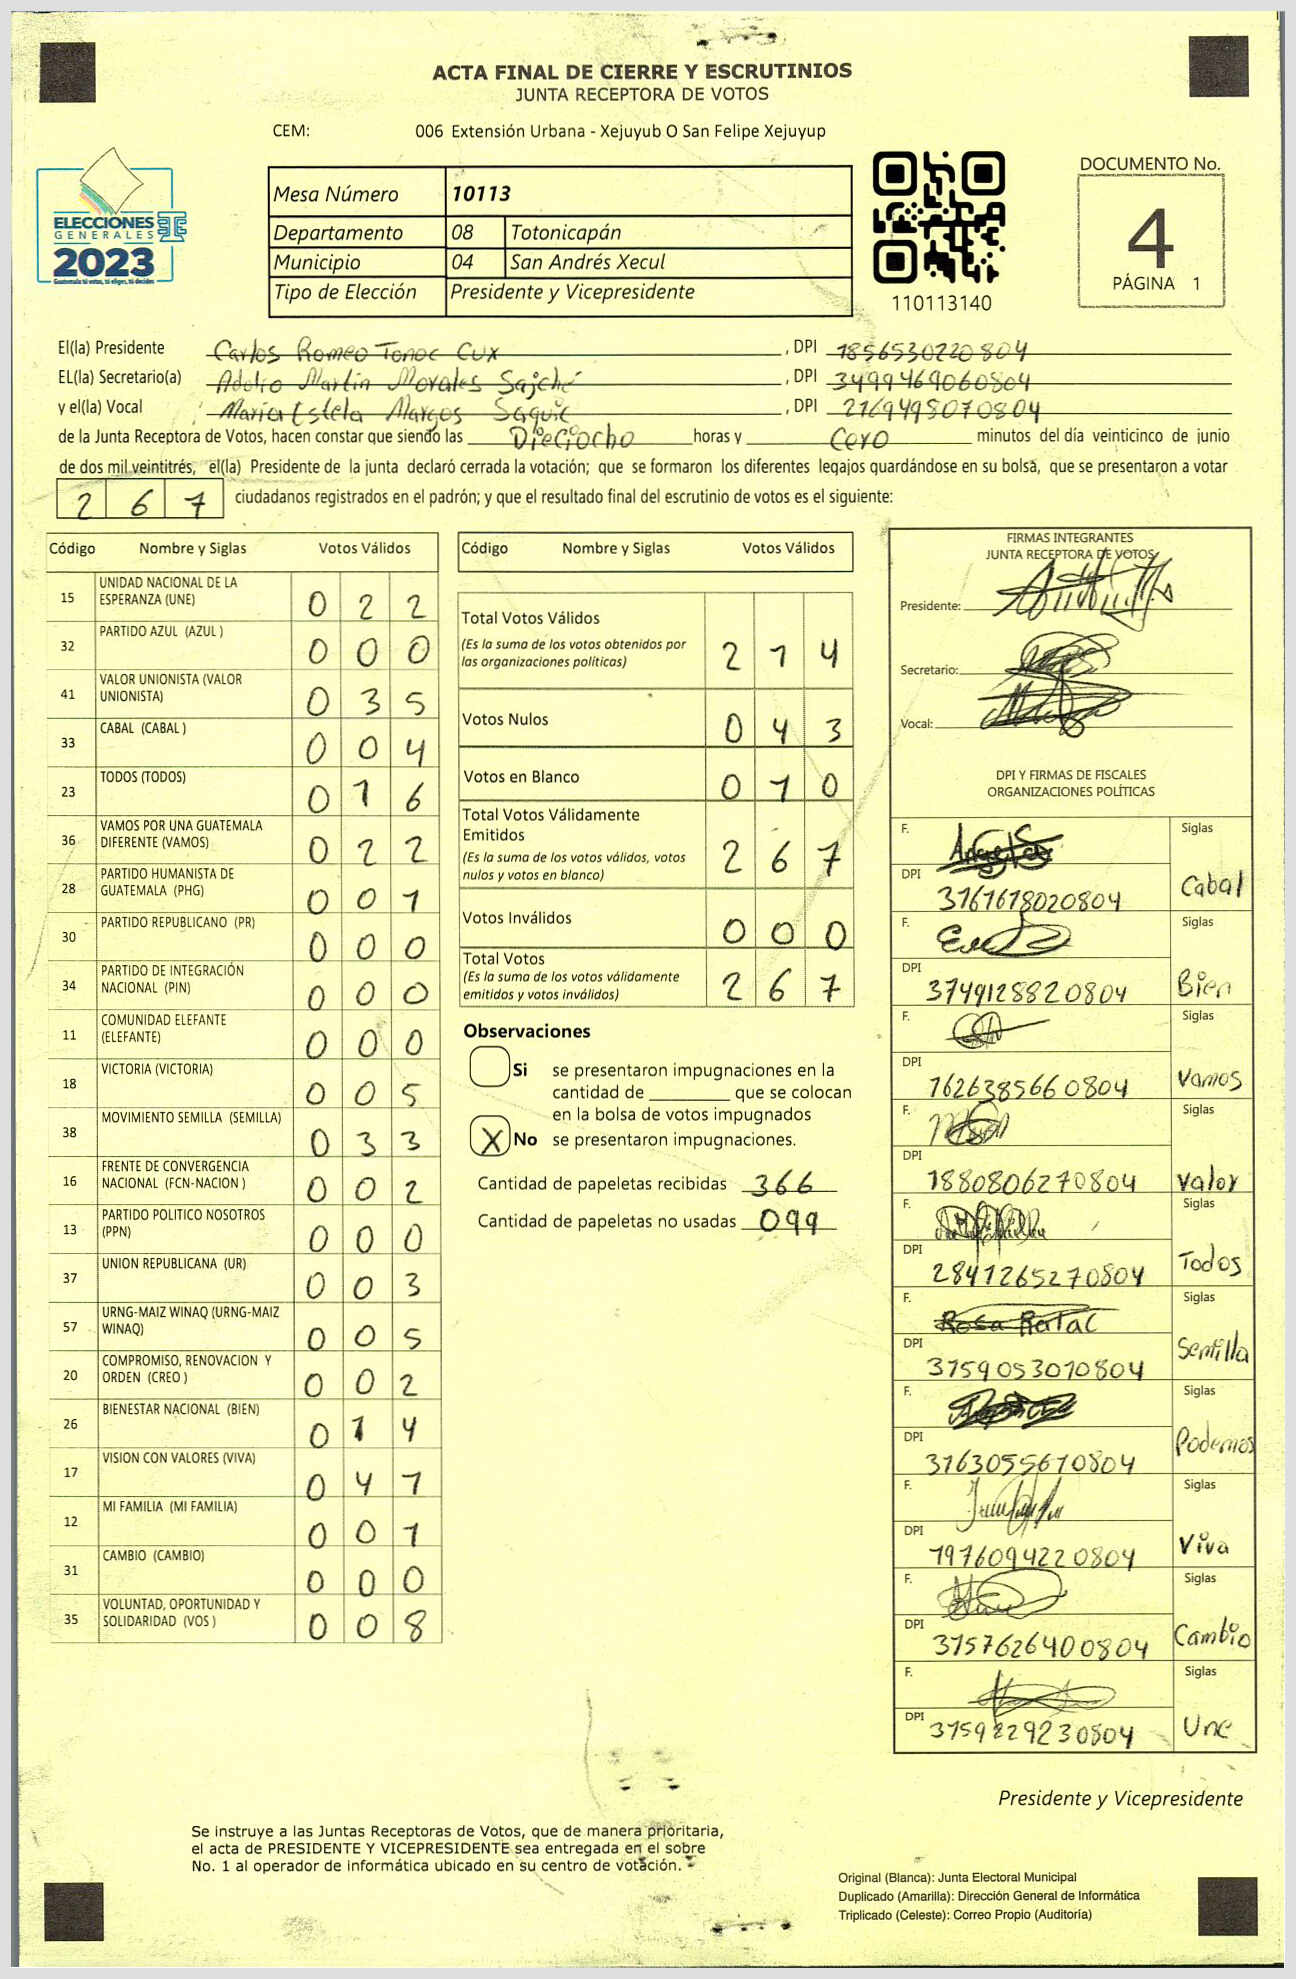 ACTA FINAL DE CIERRE Y ESCRUTINIOS
JUNTA RECEPTORA DE VOTOS
CEM: 006 Extensión Urbana - Xejuyub O San Felipe Xejuyup
ELECCIONES
GENERALES
2023
Guatemala tú votas, tú eliges, tú decides
Mesa Número 10113
Departamento 08 Totonicapán
Municipio 04 San Andrés Xecul
Tipo de Elección Presidente y Vicepresidente
110113140
DOCUMENTO No.
4
PÁGINA 1
El(la) Presidente Carlos Romeo Tonoc Cux, DPI 1856530220804
EL(la) Secretario(a) Adolfo Martin Morales Sajché, DPI 3499469060804
y el(la) Vocal Maria Estela Margos Saquic, DPI 2169498070804
de la Junta Receptora de Votos, hacen constar que siendo las Dieciocho horas y Cero minutos del día veinticinco de junio
de dos mil veintitrés, el(la) Presidente de la junta declaró cerrada la votación; que se formaron los diferentes legajos guardándose en su bolsa, que se presentaron a votar
267 ciudadanos registrados en el padrón; y que el resultado final del escrutinio de votos es el siguiente:
Código Nombre y Siglas Votos Válidos
15 UNIDAD NACIONAL DE LA ESPERANZA (UNE) 0 2 2
32 PARTIDO AZUL (AZUL ) 0 0 0
41 VALOR UNIONISTA (VALOR UNIONISTA) 0 3 5
33 CABAL (CABAL ) 0 0 4
23 TODOS (TODOS) 0 1 6
36 VAMOS POR UNA GUATEMALA DIFERENTE (VAMOS) 0 2 2
28 PARTIDO HUMANISTA DE GUATEMALA (PHG) 0 0 1
30 PARTIDO REPUBLICANO (PR) 0 0 0
34 PARTIDO DE INTEGRACIÓN NACIONAL (PIN) 0 0 0
11 COMUNIDAD ELEFANTE (ELEFANTE) 0 0 0
18 VICTORIA (VICTORIA) 0 0 5
38 MOVIMIENTO SEMILLA (SEMILLA) 0 3 3
16 FRENTE DE CONVERGENCIA NACIONAL (FCN-NACION ) 0 0 2
13 PARTIDO POLITICO NOSOTROS (PPN) 0 0 0
37 UNION REPUBLICANA (UR) 0 0 3
57 URNG-MAIZ WINAQ (URNG-MAIZ WINAQ) 0 0 5
20 COMPROMISO, RENOVACION Y ORDEN (CREO ) 0 0 2
26 BIENESTAR NACIONAL (BIEN) 0 1 4
17 VISION CON VALORES (VIVA) 0 4 1
12 MI FAMILIA (MI FAMILIA) 0 0 1
31 CAMBIO (CAMBIO) 0 0 0
35 VOLUNTAD, OPORTUNIDAD Y SOLIDARIDAD (VOS ) 0 0 8
Código Nombre y Siglas Votos Válidos
Total Votos Válidos 2 1 4
(Es la suma de los votos obtenidos por
las organizaciones políticas)
Votos Nulos 0 4 3
Votos en Blanco 0 1 0
Total Votos Válidamente
Emitidos 2 6 7
(Es la suma de los votos válidos, votos
nulos y votos en blanco)
Votos Inválidos 0 0 0
Total Votos 2 6 7
(Es la suma de los votos válidamente
emitidos y votos inválidos)
Observaciones
Si se presentaron impugnaciones en la
cantidad de ________ que se colocan
en la bolsa de votos impugnados
X No se presentaron impugnaciones.
Cantidad de papeletas recibidas 366
Cantidad de papeletas no usadas 099
FIRMAS INTEGRANTES
JUNTA RECEPTORA DE VOTOS
Presidente:
Secretario:
Vocal:
DPI Y FIRMAS DE FISCALES
ORGANIZACIONES POLÍTICAS
F. Siglas
DPI 3161618020804 Cabal
F. Siglas
DPI 3749128820804 Bien
F. Siglas
DPI 1626385660804 Vamos
F. Siglas
DPI 1880806270804 Valor
F. Siglas
DPI 2841265270804 Todos
F. Rosa Siglas
DPI 3159053010804 Semilla
F. Siglas
DPI 3163055610804 Podemos
F. Siglas
DPI 1976094220804 Viva
F. Siglas
DPI 3157626400804 Cambio
F. Siglas
DPI 3159229230804 Une
Presidente y Vicepresidente
Se instruye a las Juntas Receptoras de Votos, que de manera prioritaria,
el acta de PRESIDENTE Y VICEPRESIDENTE sea entregada en el sobre
No. 1 al operador de informática ubicado en su centro de votación.
Original (Blanca): Junta Electoral Municipal
Duplicado (Amarilla): Dirección General de Informática
Triplicado (Celeste): Correo Propio (Auditoría)